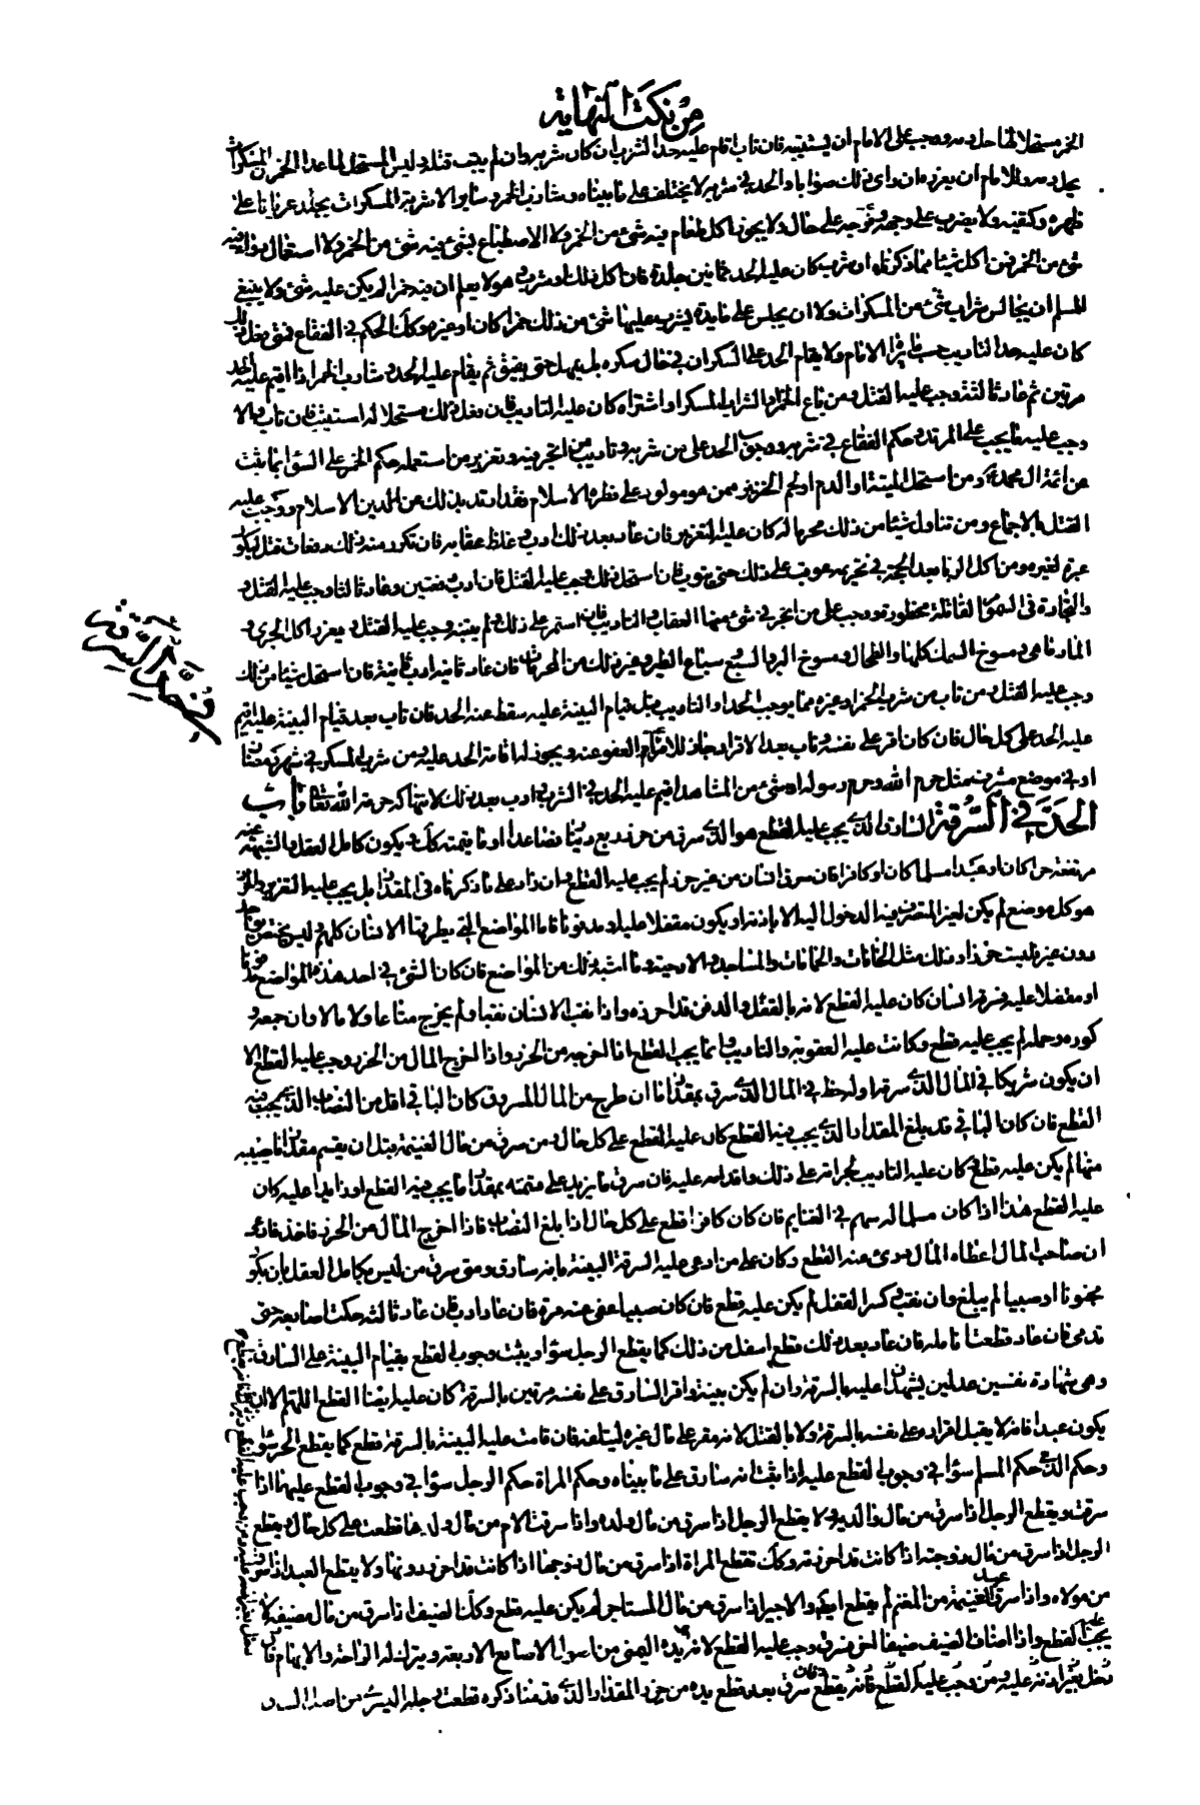 من نكت النهاية
الخمر مستحلا لها حل دمه ووجب على الامام ان يستتيبه فان تاب اقام عليه حد الشرب ان كان شربه وان لم يتب قتله وليس المستحل لما عدا الخمر من المسكرات
يحل دمه وللامام ان يعزره ان راى ذلك صوابا والحد في شربه لا يختلف على ما بيناه وشارب الخمر وسائر الاشربة المسكرات يجلد عريانا على
ظهره وكتفيه ولا يضرب على وجهه وفرجه على حال ولا يجوز اكل طعام فيه شئ من الخمر ولا الاصطباغ بشئ فيه شئ من الخمر ولا استعمال دواء فيه
شئ من الخمر فمن اكل شيئا مما ذكرناه او شرب كان عليه الحد ثمانين جلدة فان اكل ذلك او شرب وهو لا يعلم ان فيه خمرا لم يكن عليه شئ ولا ينبغي
للمسلم ان يجالس شراب شئ من المسكرات ولا ان يجلس على مايدة يشرب عليها شئ من ذلك خمرا كان او غيره وكذلك الحكم في الفقاع فمتى فعل ذلك
كان عليه التاديب حسب ما يراه الامام ولا يقام الحد على السكران في حال سكره بل يمهل حتى يفيق ثم يقام عليه الحد وشارب الخمر اذا اقيم عليه الحد
مرتين ثم عاد ثالثة وجب عليه القتل ومن باع الخمر او الشراب المسكر او اشتراه كان عليه التاديب فان فعل ذلك مستحلا له استتيب فان تاب والا
وجب عليه ما يجب على المرتد وحكم الفقاع في شربه ووجوب الحد على من شربه وتاديب من اتجر فيه وتعزير من استعمله حكم الخمر على السواء بما ثبت
عن ائمة ال محمد ومن استحل الميتة او الدم او لحم الخنزير ممن هو مولود على فطرة الاسلام فقد ارتد بذلك عن الدين الاسلام ووجب عليه
القتل بالاجماع ومن تناول شيئا من ذلك محرما له كان عليه التعزير فان عاد بعد ذلك ادب وغلظ عقابه فان تكرر منه ذلك دفعات قتل ليكون
عبرة لغيره ومن اكل الربا بعد الحجة في تحريمه عوقب على ذلك حتى يتوب فان استحل ذلك وجب عليه القتل فان ادب دفعتين وعاد ثالثا وجب عليه القتل و
والتجارة في السموم القاتلة محظورة ووجب على من اتجر في شئ منها العقاب والتاديب فان استمر على ذلك ولم ينته وجب عليه القتل ويعزر اكل الجري و
المارماهي ومسوخ السمك كلها والطحال ومسوخ البر والسبع سباع الطير وغير ذلك من المحرمات فان عاد ثانية ادب ثانية فان استحل شيئا من ذلك
وجب عليه القتل ومن تاب من شرب الخمر او غيره مما يوجب الحد او التاديب قبل قيام البينة عليه سقط عنه الحد فان تاب بعد قيام البينة عليه اقيم
عليه الحد على كل حال فان كان اقر على نفسه وتاب بعد الاقرار جاز للامام العفو عنه ويجوز له اقامة الحد عليه ومن شرب المسكر في شهر رمضان
او في موضع مشرف مثل حرم الله وحرم رسوله او شئ من المشاهد اقيم عليه الحد في الشرب وادب بعد ذلك لانتهاكه حرمة الله تعالى باب
الحد في السرقة السارق الذي يجب عليه القطع هو الذي سرق من حرز ربع دينار فصاعدا او ما قيمته كذلك ويكون كامل العقل والشبهة عنه
مرتفعة حرا كان او عبدا مسلما كان او كافرا فان سرق انسان من غير حرز لم يجب عليه القطع وان زاد على ما ذكرناه في المقدار بل يجب عليه التعزير والحرز
هو كل موضع لم يكن لغير المتصرف فيه الدخول اليه الا باذنه او يكون مقفلا عليه او مدفونا فاما المواضع التي يطرقها الانسان كلهم وليس يختص بواحد
دون غيره فليست حرزا وذلك مثل الخانات والحمامات والمساجد والارحية وما اشبه ذلك من المواضع فان كان الشئ في احد هذه المواضع مدفونا
او مقفلا عليه فسرقه انسان كان عليه القطع لانه بالقفل والدفن قد احرزه واذا نقب الانسان نقبا ولم يخرج متاعا ولا مالا وان جمعه و
كوره وحمله لم يجب عليه قطع وكانت عليه العقوبة والتاديب وانما يجب القطع اذا اخرجه من الحرز واذا اخرج المال من الحرز وجب عليه القطع الا
ان يكون شريكا في المال الذي سرقه او له حظ في المال الذي سرق بمقدار ما ان طرح من المال المسروق كان الباقي اقل من النصاب الذي يجب فيه
القطع فان كان الباقي قد بلغ المقدار الذي يجب فيه القطع كان عليه القطع على كل حال ومن سرق من مال الغنيمة قبل ان يقسم مقدار ما نصيبه
منها لم يكن عليه قطع وكان عليه التاديب لجرأته على ذلك واقدامه عليه فان سرق ما يزيد على قسمته بمقدار ما يجب فيه القطع او زايدا عليه كان
عليه القطع هذا اذا كان مسلما له سهم في الغنايم فان كان كافرا قطع على كل حال اذا بلغ النصاب فاذا اخرج المال من الحرز فاخذ فادعى
ان صاحب المال اعطاه المال درئ عنه القطع وكان على من ادعى عليه السرقة البينة بانه سارق ومتى سرق من ليس بكامل العقل بان يكون
مجنونا او صبيا لم يبلغ وان نقب وكسر القفل لم يكن عليه قطع فان كان صبيا عفي عنه مرة فان عاد ادب فان عاد ثالثة حكت اصابعه حتى
تدمى فان عاد قطعت انامله فان عاد بعد ذلك قطع اسفل من ذلك كما يقطع الرجل سواء ويثبت وجوب القطع بقيام البينة على السارق
وهي شهادة نفسين عدلين يشهدان عليه بالسرقة وان لم يكن بينة واقر السارق على نفسه مرتين بالسرقة كان عليه ايضا القطع اللهم الا ان
يكون عبدا فانه لا يقبل اقراره على نفسه بالسرقة ولا بالقتل لانه مقر على مال غيره ليتلفه فان قامت عليه البينة بالسرقة قطع كما يقطع الحر سواء
وحكم الذمي حكم المسلم سواء في وجوب القطع عليه اذا ثبت انه سارق على ما بيناه وحكم المراة حكم الرجل سواء في وجوب القطع عليها اذا
سرقت ويقطع الرجل اذا سرق من مال والديه ولا يقطع الرجل اذا سرق من مال ولده واذا سرقت الام من مال ولدها قطعت على كل حال ويقطع
الرجل اذا سرق من مال زوجته اذا كانت قد احرزته وكذلك تقطع المراة اذا سرقت من مال زوجها اذا كانت قد احرز دونها ولا يقطع العبد اذا سرق
من مولاه واذا سرق عبد الغنيمة من المغنم لم يقطع ايضا والاجير اذا سرق من مال المستاجر لم يكن عليه قطع وكذلك الضيف اذا سرق من مال مضيفه لا
يجب عليه القطع واذا اضاف الضيف ضيفا اخر فسرق وجب عليه القطع لانه
دخل بغير اذنه عليه ومن وجب عليه القطع فانه يقطع يده اليمنى من اصول الاصابع الاربعة ويترك له الراحة والابهام فان سرق بعد قطع يده من حرز المقدار الذي قدمنا ذكره قطعت رجله اليسرى من اصل الساق
في حد السرقة